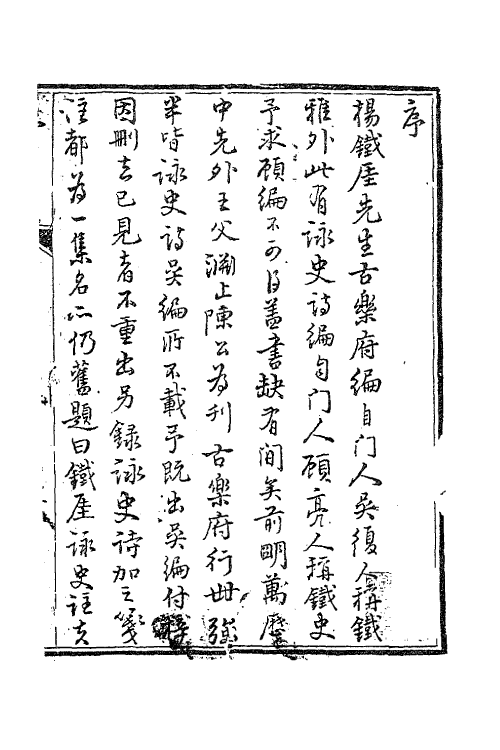 序
楊鐵厓先生古樂府編自門人吳復人稱鐵
雅外此有詠史詩編自门人顾亮人稱鐵史
予求顾編不可得盖書缺有间矣前明萬曆
中先外王父渊止陳公為刊古樂府行世强
半皆詠史詩吳編所不載予既出吳編付梓
因刪去已見者不重出另錄詠史詩加之箋
註都為一集名之仍舊題曰鐵厓詠史註去